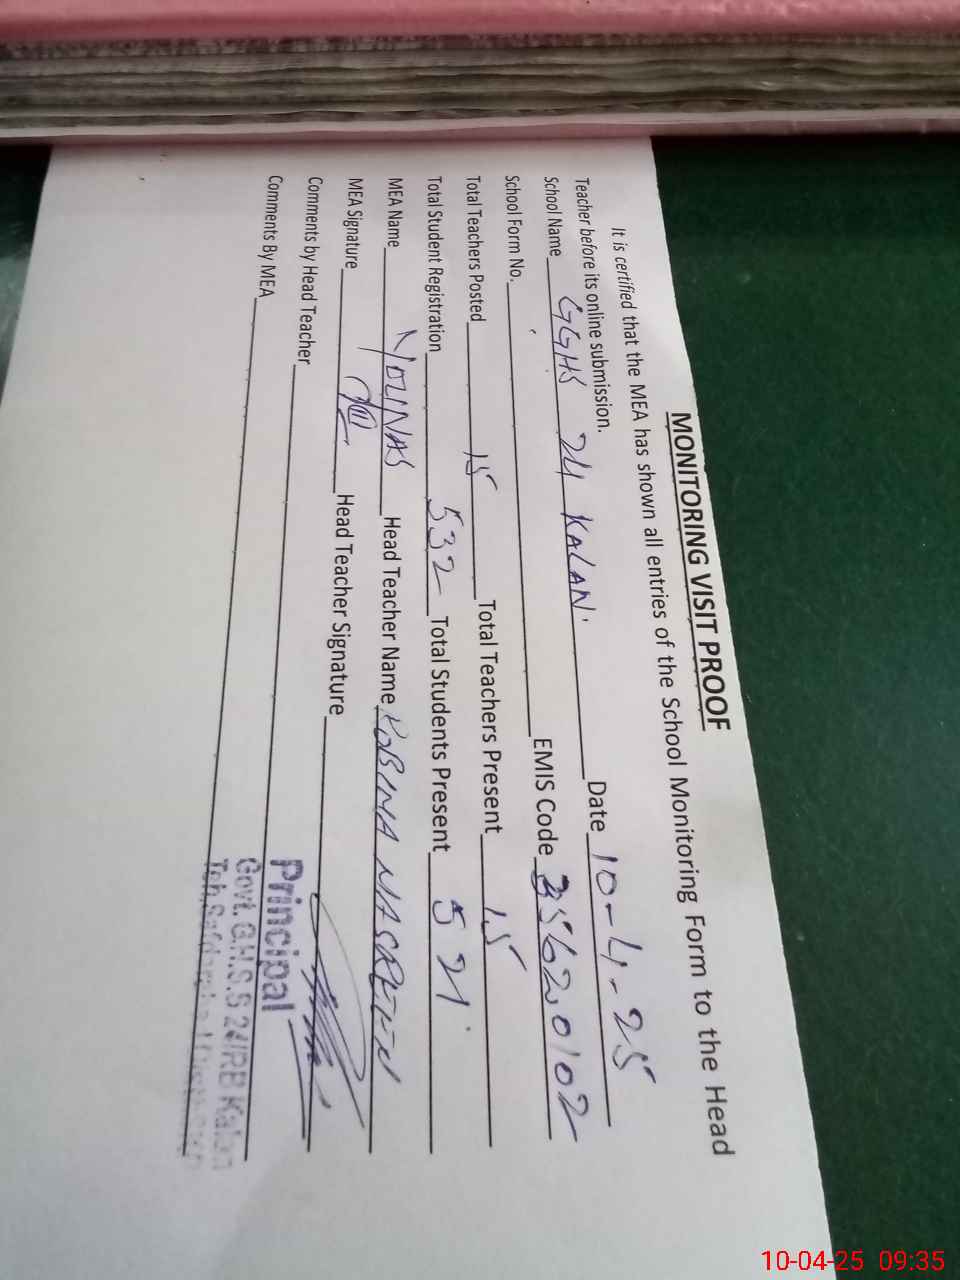 MONITORING VISIT PROOF
It is certified that the MEA has shown all entries of the School Monitoring Form to the Head
Teacher before its online submission.
School Name GGHS 24 KALAN. Date 10-4-25
School Form No. EMIS Code 35620102
Total Teachers Posted 15 Total Teachers Present 15
Total Student Registration 532 Total Students Present 521
MEA Name YOUNAS Head Teacher Name ROBINA NASREEN
MEA Signature Head Teacher Signature
Comments by Head Teacher
Comments By MEA
Principal
Govt. G.H.S.S 24/RB Kalan
10-04-25 09:35